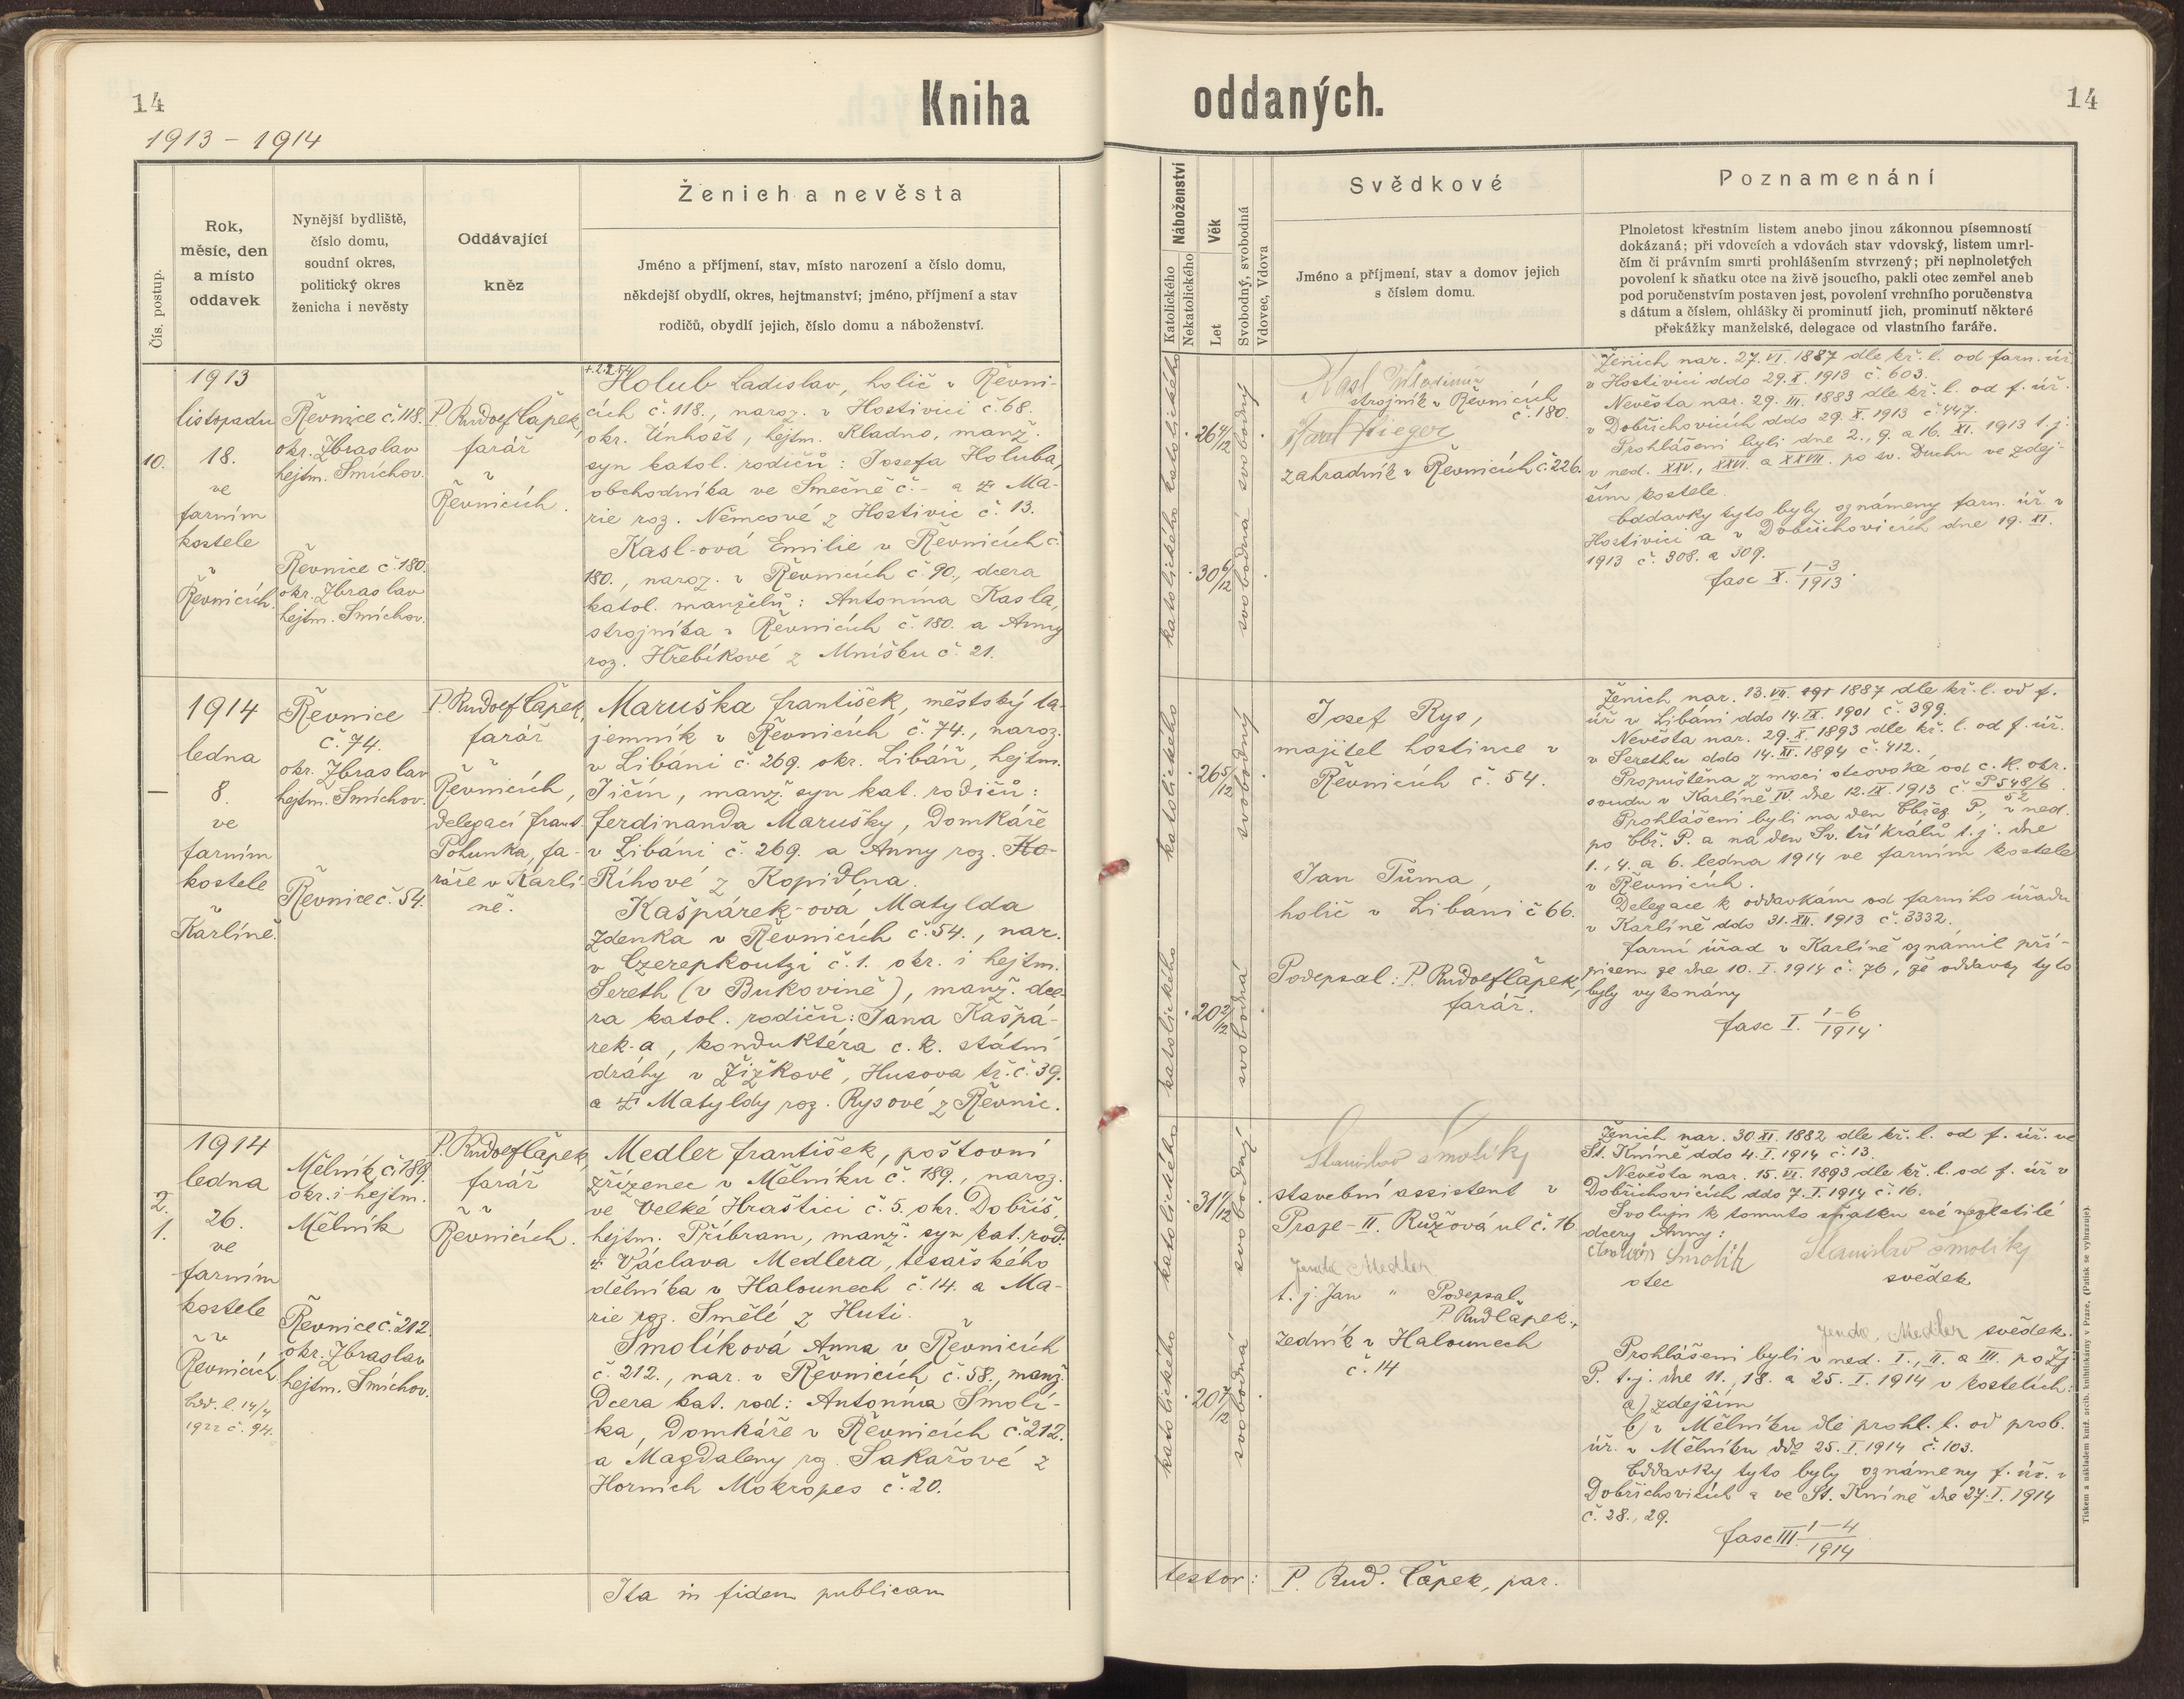 14
Kniha
1913 – 1914
Čís. postup.
Rok,
měsíc, den
a místo
oddavek
Nynější bydliště,
číslo domu,
soudní okres,
politický okres
ženicha i nevěsty
Oddávající
kněz
Ženich a nevěsta
Jméno a příjmení, stav, místo narození a číslo domu,
někdejší obydlí, okres, hejtmanství; jméno, příjmení a stav
rodičů, obydlí jejich, číslo domu a náboženství.
10.
1913
listopadu
18.
ve
farním
kostele
v
Řevnicích.
Řevnice č. 118.
okr. Zbraslav
hejtm. Smíchov.
Řevnice č. 180.
okr. Zbraslav
hejtm. Smíchov.
P. Rudolf Čápek,
farář
v
Řevnicích.
Holub Ladislav, holič v Řevni-
cích č. 118., naroz. v Hostivici č. 68.
okr. Únhošť, hejtm. Kladno, manž.
syn katol. rodičů: Josefa Holuba,
obchodníka ve Smečně č. – a Ma-
rie roz. Němcové z Hostivic č. 13.
Kasl-ová Emilie v Řevnicích č.
180., naroz. v Řevnicích č. 90., dcera
katol. manželů: Antonína Kasla,
strojníka v Řevnicích č. 180. a Anny
roz. Hřebíkové z Mníšku č. 21.
—
1914
ledna
8.
ve
farním
kostele
v
Karlíně.
Řevnice
č. 74.
okr. Zbraslav
hejtm. Smíchov.
Řevnice č. 54.
P. Rudolf Čápek,
farář
v
Řevnicích,
delegací Frant.
Pohunka, fa-
ráře v Karlí-
ně.
Maruška František, městský ta-
jemník v Řevnicích č. 74., naroz.
v Libáni č. 269. okr. Libáň, hejtm.
Jičín, manž. syn kat. rodičů:
Ferdinanda Marušky, domkáře
v Libáni č. 269. a Anny roz. Ko-
Říhové z Kopidlna.
Kašpárek-ová Matylda
Zdenka v Řevnicích č. 54., nar.
v Czerepkoutzi č. 1. okr. i hejtm.
Sereth (v Bukovině), manž. dce-
ra katol. rodičů: Jana Kašpá-
rek-a, konduktéra c. k. státní
dráhy v Žižkově, Husova tř. č. 39.
a Matyldy roz. Rysové z Řevnic.
2.
1.
1914
ledna
26.
ve
farním
kostele
v
Řevnicích
1922 č. 94.
Mělník č. 189.
okr. i hejtm.
Mělník
Řevnice č. 212.
okr. Zbraslav
hejtm. Smíchov.
P. Rudolf Čápek,
farář
v
Řevnicích.
Medler František, poštovní
zřízenec v Mělníku č. 189., naroz.
ve Velké Hraštici č. 5. okr. Dobříš,
hejtm. Příbram, manž. syn kat. rod:
Václava Medlera, tesařského
dělníka v Halounech č. 14. a Ma-
rie roz. Smělé z Huti.
Smolíková Anna v Řevnicích
č. 212., nar. v Řevnicích č. 58., manž.
dcera kat. rod: Antonína Smolí-
ka, domkáře v Řevnicích č. 212.
a Magdaleny roz. Sakařové z
Horních Mokropes č. 20.
Ita in fidem publicam
oddaných.
14
Náboženství
Katolického
Nekatolického
Věk
Let
Svobodný, svobodná
Vdovec, Vdova
Svědkové
Jméno a příjmení, stav a domov jejich
s číslem domu.
Poznamenání
Plnoletost křestním listem anebo jinou zákonnou písemností
dokázaná; při vdovcích a vdovách stav vdovský, listem umrl-
čím či právním smrti prohlášením stvrzený; při neplnoletých
povolení k sňatku otce na živě jsoucího, pakli otec zemřel aneb
pod poručenstvím postaven jest, povolení vrchního poručenstva
s dátum a číslem, ohlášky či prominutí jich, prominutí některé
překážky manželské, delegace od vlastního faráře.
katolického
26 4/12
svobodný
katolického
30 6/12
svobodná
Kasl
strojník v Řevnicích
č. 180.
Karel Krieger
zahradník v Řevnicích č. 226.
Ženich nar. 27. VI. 1887 dle kř. l. od farn. úř.
v Hostivici ddo 29. X. 1913 č. 603.
Nevěsta nar. 29. III. 1883 dle kř. l. od f. úř.
v Dobřichovicích ddo 29. X. 1913 č. 447.
Prohlášeni byli dne 2., 9. a 16. XI. 1913 t. j.
v ned. XXV., XXVI. a XXVII. po sv. Duchu ve zdej-
ším kostele.
Oddavky tyto byly oznámeny farn. úř. v
Hostivici a v Dobřichovicích dne 19. XI.
1913 č. 308. a 309.
fasc X. 1–3/1913.
katolického
26 5/12
svobodný
katolického
20 2/12
svobodná
Josef Rys,
majitel hostince v
Řevnicích č. 54.
Jan Tůma,
holič v Libáni č 66.
Podepsal: P. Rudolf Čápek,
farář.
Ženich nar. 13. VII. 1887 dle kř. l. od f.
úř v Libáni ddo 14. IX. 1901 č. 399.
Nevěsta nar. 29. X. 1893 dle kř. l. od f. úř.
v Serethu ddo 14. XI. 1894 č. 412.
Propuštěna z moci otcovské od c. k. okr.
soudu v Karlíně IV. dne 12. IX. 1913 č. P 548/6
52
Prohlášeni byli na den Obřez. P., v ned.
po Obř. P. a na den Sv. tří králů t. j. dne
1., 4. a 6. ledna 1914 ve farním kostele
v Řevnicích.
Delegace k oddavkám od farního úřadu
v Karlíně ddo 31. XII. 1913 č. 3332.
Farní úřad v Karlíně oznámil pří-
pisem ze dne 10. I. 1914 č. 76, že oddavky tyto
byly vykonány
fasc I. 1–6/1914.
katolického
31 1/12
svobodný
katolického
20 7/12
svobodná
Stanislav Smolík
stavební assistent v
Praze – II. Růžová ul č. 16
Jenda Medler
t. j. Jan " Podepsal
P. Rud Čápek.
zedník v Halounech
č. 14
Ženich nar. 30. XI. 1882 dle kř. l. od f. úř. ve
St. Kníně ddo 4. I. 1914 č. 13.
Nevěsta nar. 15. VI. 1893 dle kř. l. od f. úř v
Dobřichovicích ddo 7. I. 1914 č. 16.
Svoluji k tomuto sňatku své nezletilé
dcery Anny:
Antonín Smolík Stanislav Smolík
otec svědek
Jenda Medler svědek.
Prohlášeni byli v ned. I., II. a III. po Zj.
P. t. j. dne 11., 18. a 25. I. 1914 v kostelích:
a) zdejším
b) v Mělníku dle prohl. l. od prob.
úř. v Mělníku ddo 25. I. 1914 č. 103.
Oddavky tyto byly oznámeny f. úř. v
Dobřichovicích a ve St. Kníně dne 27. I. 1914
č. 28., 29.
fasc III. 1–4/1914
testor: P. Rud. Čápek, par.
Tiskem a nákladem kníž. arcib. knihtiskárny v Praze. (Patisk se vyhrazuje).